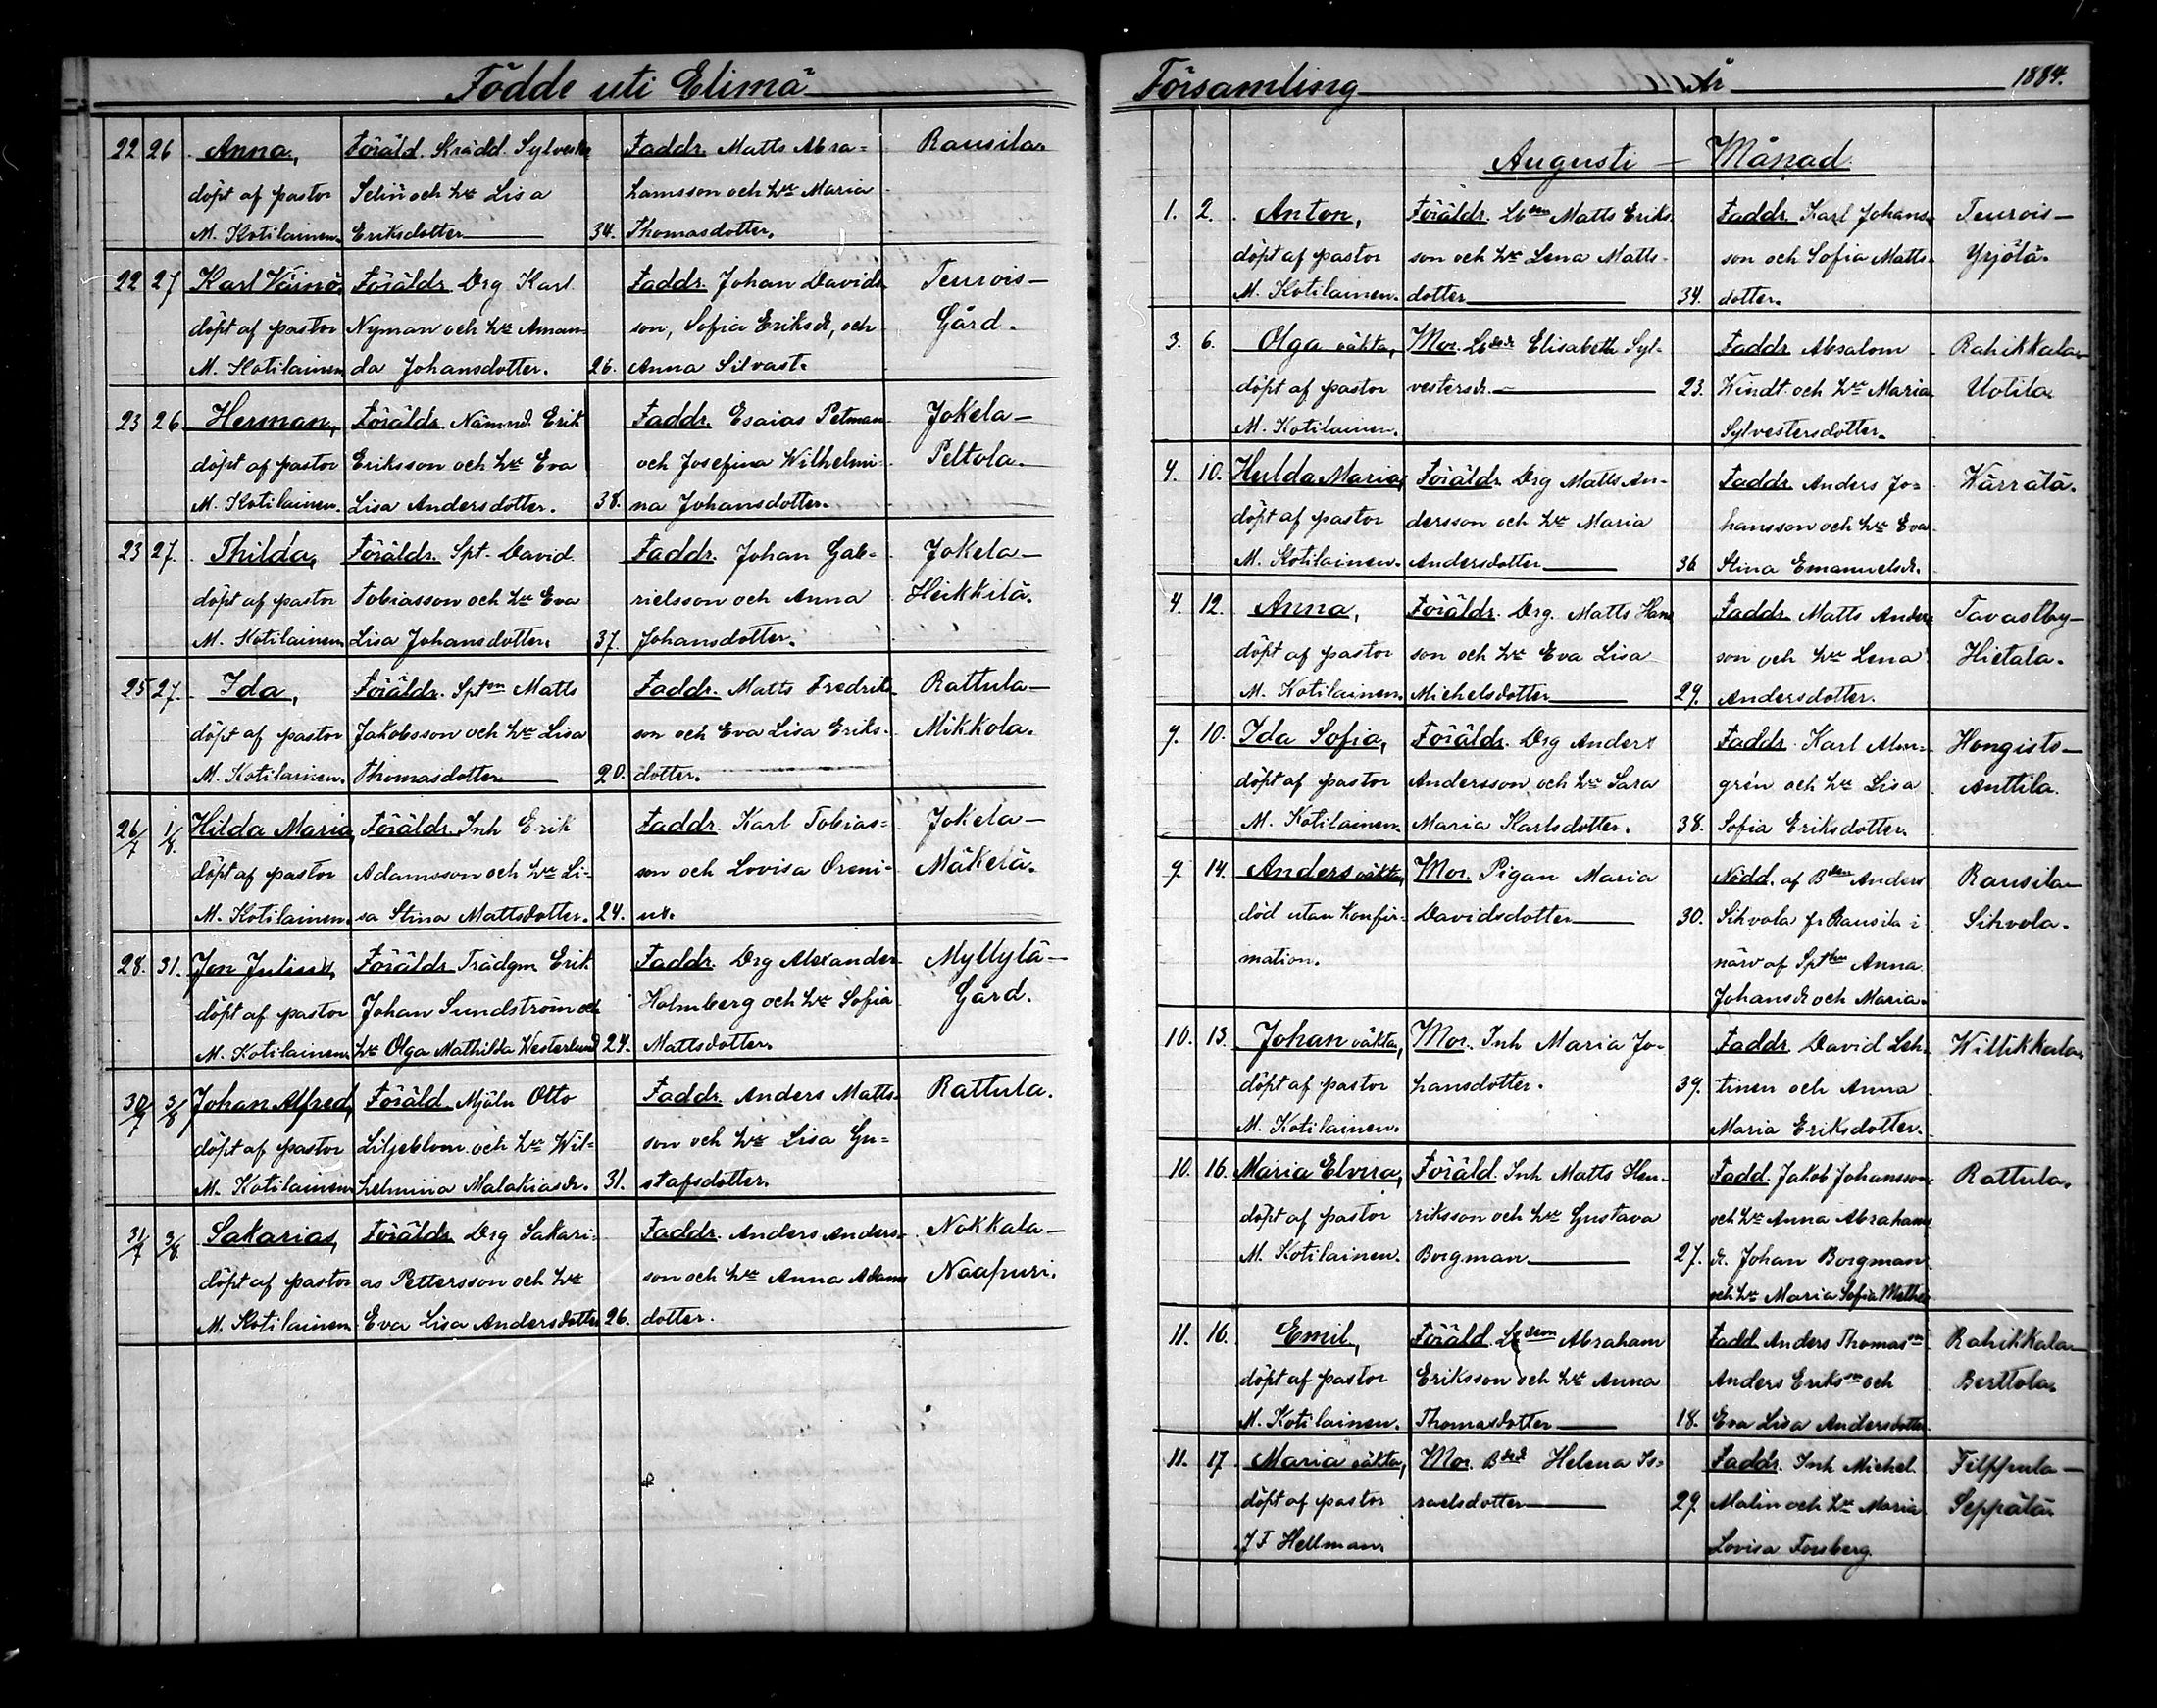 Födde uti Elimä
22 26 Anna, Föräld. Skrädd. Sylvester Faddr. Matts Abra= Rausila.
döpt af pastor Selin och h:u Lisa hamsson och h:u Maria
M. Kotilainen. Eriksdotter 34. Thomasdotter.
22 27 Karl Väinö, Föräldr. Drg Karl Faddr. Johan Davids- Teurois-
döpt af pastor Nyman och h:u Aman- son, Sofia Eriksdr, och Gård.
M. Kotilainen da Johansdotter. 26. Anna Silvast.
23 26 Herman, Föräldr. Nämnd. Erik Faddr. Esaias Petman Jokela-
döpt af pastor Eriksson och h:u Eva och Josefina Wilhelmi- Peltola.
M. Kotilainen. Lisa Andersdotter. 38. na Johansdotter.
23 27. Thilda, Föräldr. Spt. David Faddr. Johan Gab= Jokela-
döpt af pastor Tobiasson och h:u Eva rielsson och Anna Heikkilä.
M. Kotilainen Lisa Johansdotter. 37. Johansdotter.
25 27. Ida, Föräldr. Sptn Matts Faddr. Matts Fredriks- Rattula-
döpt af pastor Jakobsson och h:u Lisa son och Eva Lisa Eriks- Mikkola.
M. Kotilainen. Thomasdotter 20. dotter.
26/7 1/8. Hilda Maria, Föräldr. Inh Erik Faddr. Karl Tobias= Jokela-
döpt af pastor Adamsson och h:u Li- son och Lovisa Oreni- Mäkelä.
M. Kotilainen. sa Stina Mattsdotter. 24. us.
28. 31. Jon Julius, Föräldr. Trädgm Erik Faddr. Drg Alexander Myllylä-
döpt af pastor Johan Sundström och Holmberg och h:u Sofia Gård.
M. Kotilainen h:u Olga Mathilda Westerlund 24. Mattsdotter.
30/7 3/8 Johan Alfred, Föräld. Mjöln Otto Faddr. Anders Matts- Rattula.
döpt af pastor Liljeblom och h:u Wil= son och h:u Lisa Gu=
M. Kotilainen helmina Malakiasdr. 31. stafsdotter.
31/7 3/8 Sakarias, Föräldr. Drg Sakari- Faddr. Anders Anders- Nokkala-
döpt af pastor as Pettersson och h:u son och h:u Anna Adams Naapuri.
M. Kotilainen Eva Lisa Andersdotter 26. dotter.
Församling År 1884.
Augusti - Månad.
1. 2. Anton, Föräldr. Matts Eriks- Faddr. Karl Johans- Teurois-
döpt af pastor son och h:u Lena Matts- son och Sofia Matts- Yrjölä.
M. Kotilainen. dotter 34. dotter.
3. 6. Olga oäkta, Mor. Elisabeth Syl- Faddr. Absalom Rahikkala-
döpt af pastor vestersdr. 23. Windt och h:u Maria Uotila
M. Kotilainen. Sylvestersdotter.
4. 10. Hulda Maria, Föräldr. Drg Matts An- Faddr. Anders Jo- Wärrälä.
döpt af pastor dersson och h:u Maria hansson och h:u Eva
M. Kotilainen. Andersdotter 36 Stina Emanuelsdr.
4. 12. Anna, Föräldr. Drg. Matts Hans Faddr. Matts Anders Tavastby-
döpt af pastor son och h:u Eva Lisa son och h:u Lena Hietala.
M. Kotilainen. Michelsdotter 29. Andersdotter.
9. 10. Ida Sofia, Föräldr. Drg Anders Faddr. Karl Alm- Hongisto-
döpt af pastor Andersson och h:u Sara grén och h:u Lisa Anttila.
M. Kotilainen. Maria Karlsdotter. 38. Sofia Eriksdotter.
9. 14. Anders oäkta, Mor. Pigan Maria Nödd. af Anders Rausila-
död utan Konfir- Davidsdotter 30. Sihvola fr Rausila i Sihvola.
mation. närv af Anna
Johansdr och Maria.
10. 13. Johan oäkta, Mor. Inh Maria Jo- Faddr. David Leh- Willikkala.
döpt af pastor hansdotter. 39. tinen och Anna
M. Kotilainen. Maria Eriksdotter.
10. 16. Maria Elvira, Föräld. Inh Matts Hen- Fadd. Jakob Johansson Rattula.
döpt af pastor riksson och h:u Gustava och h:u Anna Abrahams
M. Kotilainen. Borgman 27. dr. Johan Borgman
och h:u Maria Sofia
11. 16. Emil, Föräld. Abraham Fadd. Anders Thomasson Rahikkala-
döpt af pastor Eriksson och h:u Anna Anders Eriksson och Berttola.
M. Kotilainen. Thomasdotter 18. Eva Lisa Andersdotter
11. 17 Maria oäkta, Mor. Helena Is= Faddr. Inh Michel Filppula-
döpt af pastor raelsdotter 29. Malin och h:u Maria Seppälä
J F Hellman. Lovisa Forsberg.